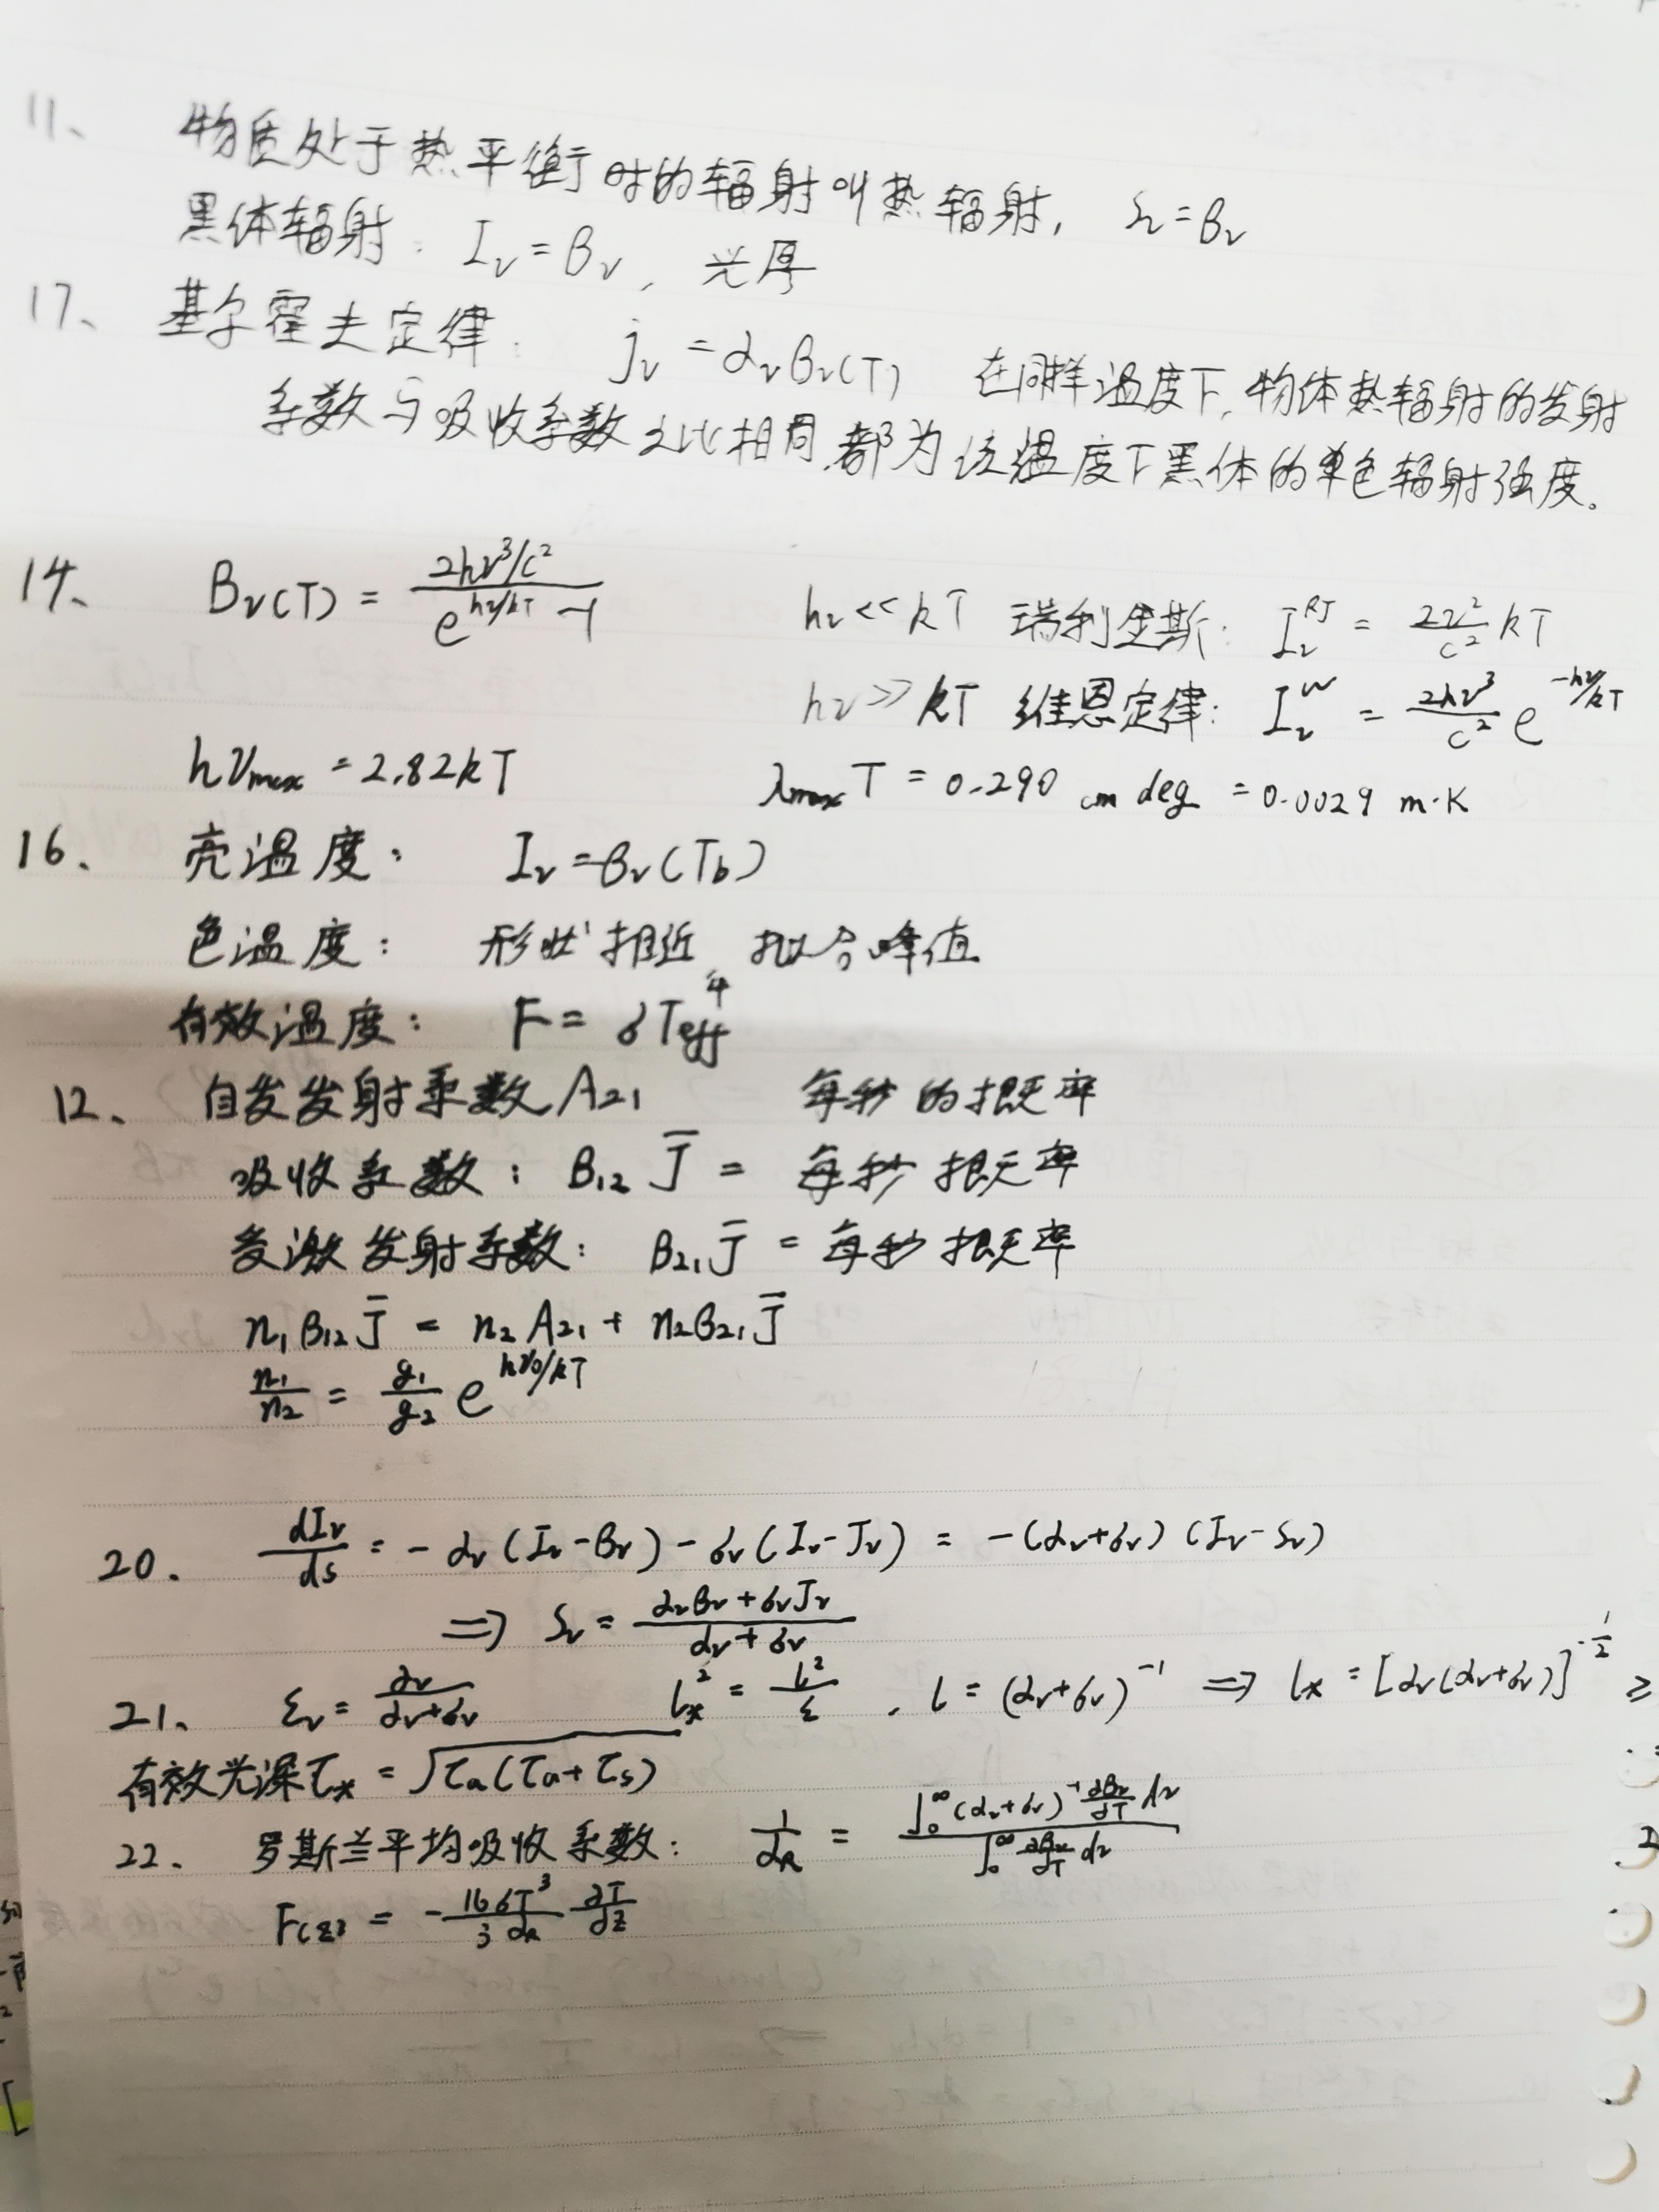 11、 物质处于热平衡时的辐射叫热辐射, Sν=Bν
黑体辐射: Iν=Bν, 光厚
17、 基尔霍夫定律: jν=ανBν(T) 在同样温度下,物体热辐射的发射
系数与吸收系数之比相同,都为该温度下黑体的单色辐射强度。
14、 Bν(T) = (2hν³/c²)/(e^{hν/kT} -1) hν<<kT 瑞利金斯: Iν^{RJ} = (2ν²/c²) kT
hν≫kT 维恩定律: Iν^{W} = (2hν³/c²) e^{-hν/kT}
hνmax = 2.82kT λmax T = 0.290 cm deg = 0.0029 m·K
16、 亮温度: Iν=Bν(Tb)
色温度: 形状相近 拟合峰值
有效温度: F = σTeff⁴
12、 自发发射系数A₂₁ 每秒的概率
吸收系数: B₁₂ J̄ = 每秒概率
受激发射系数: B₂₁ J̄ = 每秒概率
n₁B₁₂J̄ = n₂A₂₁ + n₂B₂₁J̄
n₁/n₂ = (g₁/g₂) e^{hν₀/kT}
20. dIν/ds = -αν(Iν-Bν) - σν(Iν-Jν) = -(αν+σν)(Iν-Sν)
⇒ Sν = (ανBν+σνJν)/(αν+σν)
21、 εν = αν/(αν+σν) l*² = l²/ε , l = (αν+σν)⁻¹ ⇒ l* = [αν(αν+σν)]^{-1/2} ≥
有效光深τ* = √(τa(τa+τs))
22. 罗斯兰平均吸收系数: 1/αR = (∫₀^∞ (αν+σν)⁻¹ ∂Bν/∂T dν)/(∫₀^∞ ∂Bν/∂T dν)
F(z) = -(16σT³/3αR) ∂T/∂z